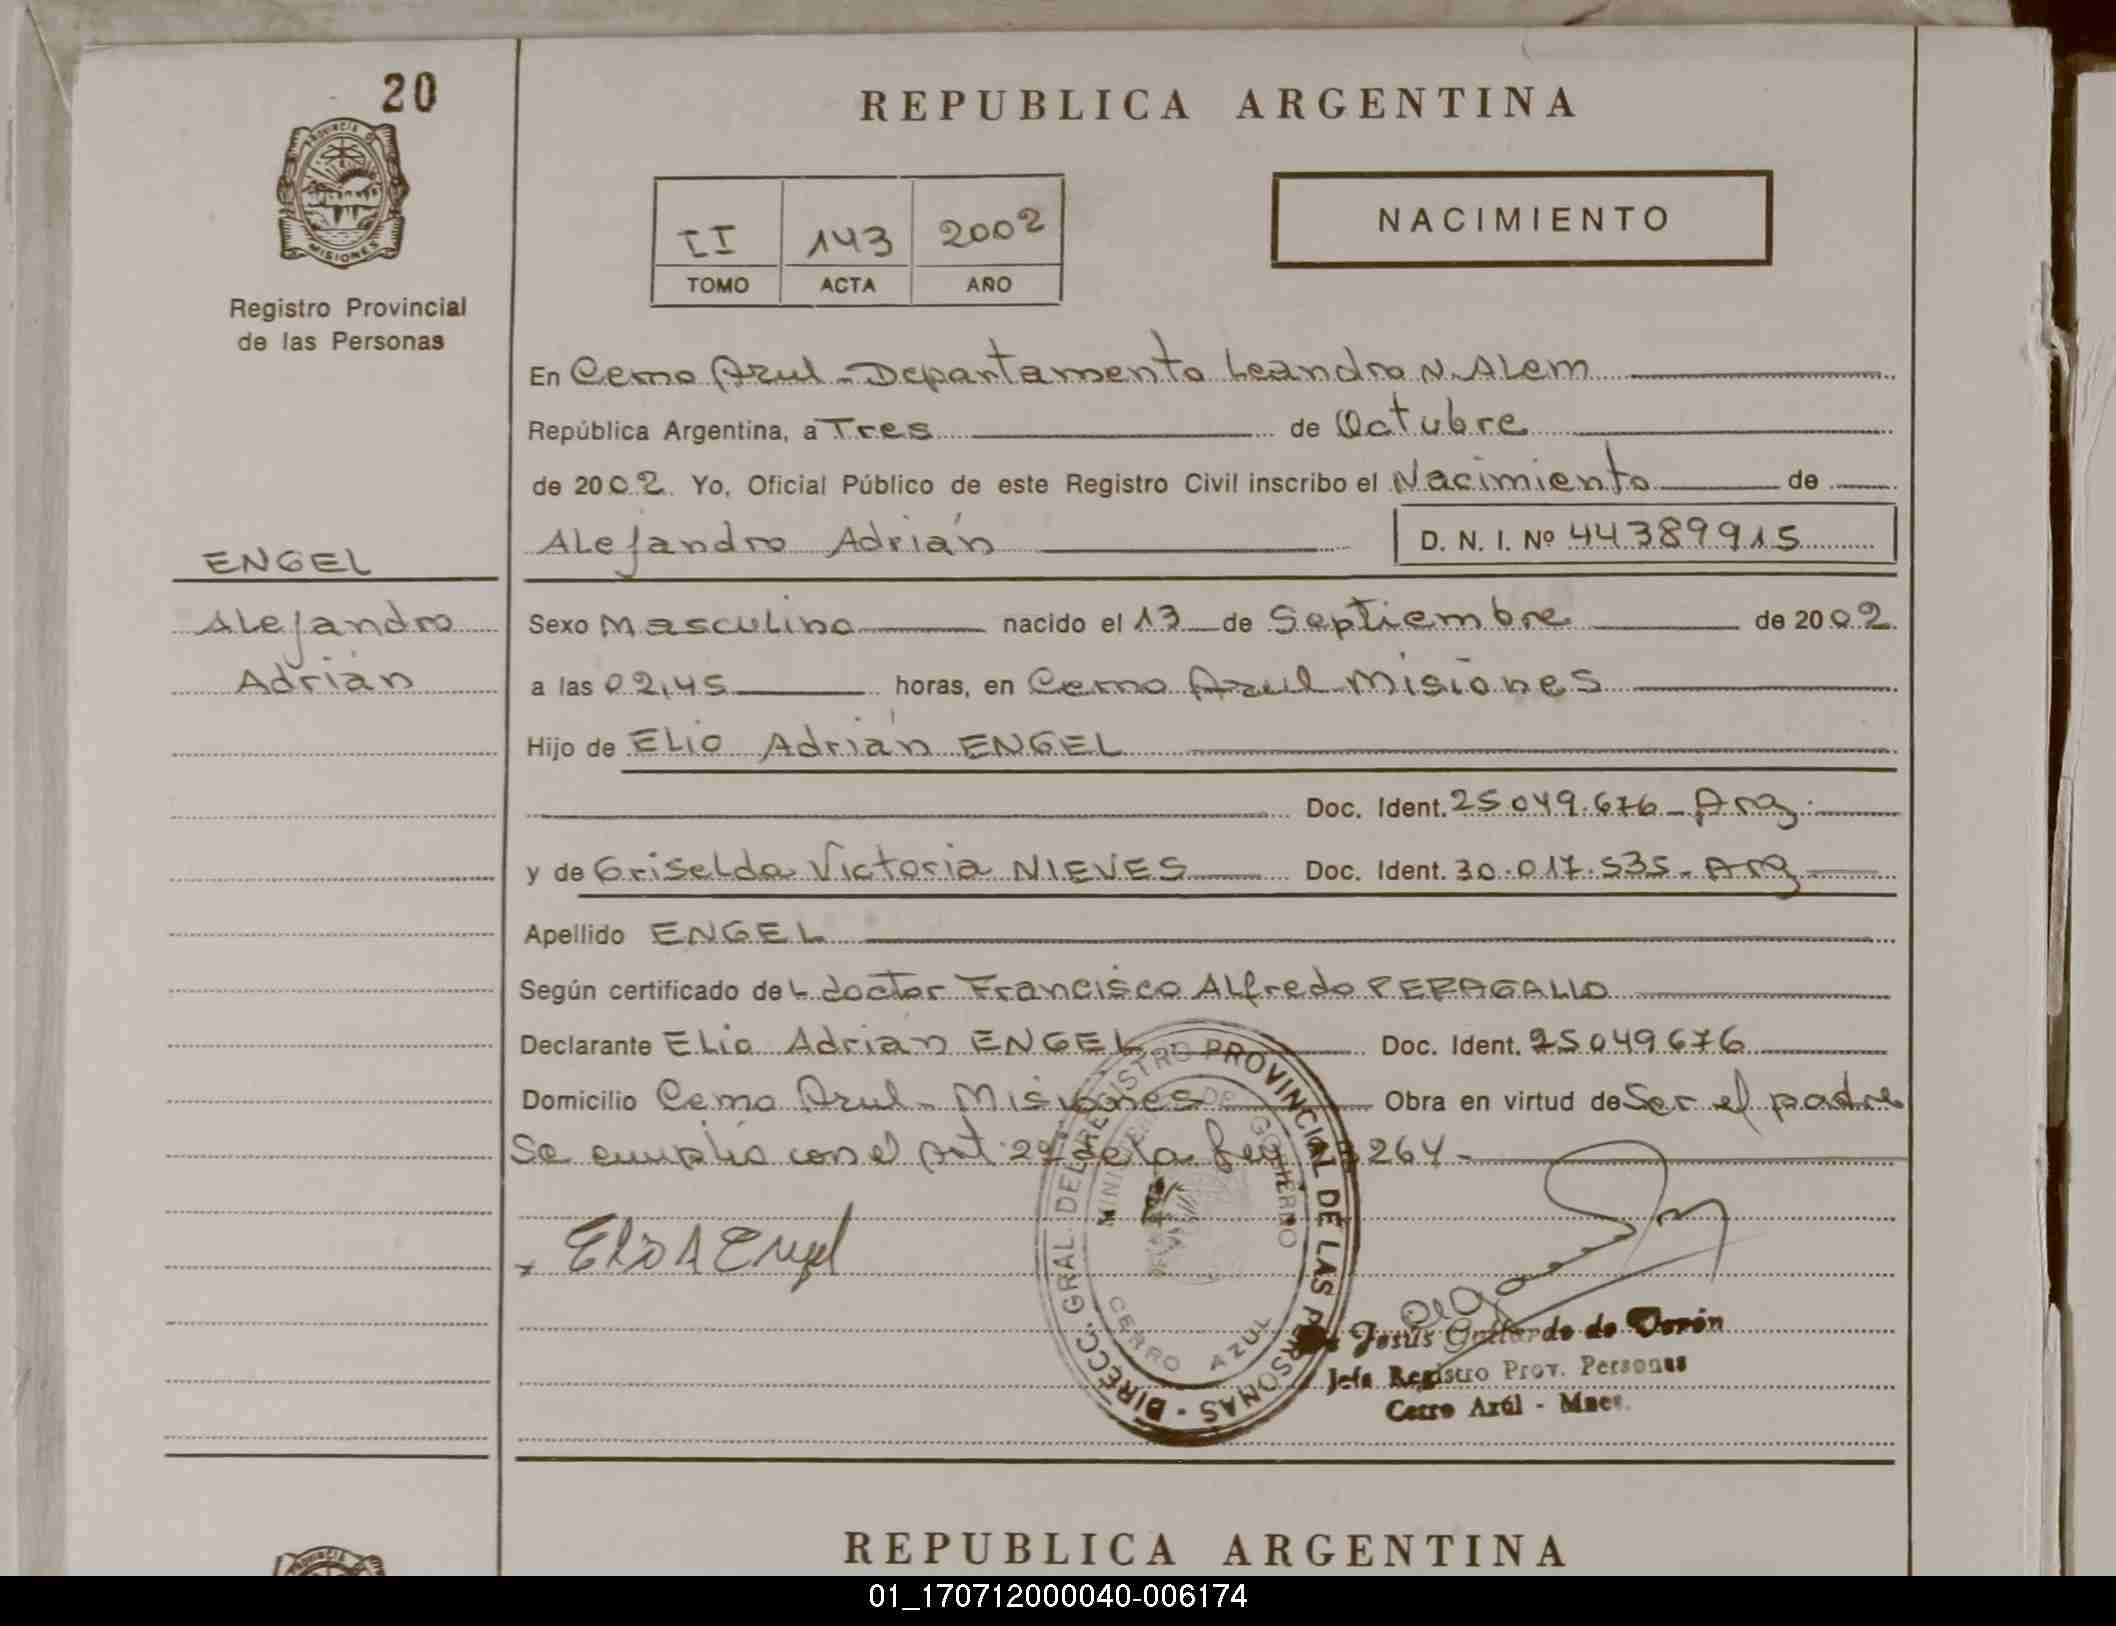 20
REPUBLICA ARGENTINA
PROVINCIA D
MISIONES
Registro Provincial
de las Personas
II 143 2002
TOMO ACTA AÑO
NACIMIENTO
En Cerro Azul - Departamento Leandro N. Alem
República Argentina, a Tres de Octubre
de 2002. Yo, Oficial Público de este Registro Civil inscribo el Nacimiento de
Alejandro Adrián D. N. I. Nº 44389915
ENGEL
Alejandro
Adrián
Sexo Masculino nacido el 13 de Septiembre de 2002.
a las 02,45 horas, en Cerro Azul Misiones
Hijo de Elio Adrián ENGEL
Doc. Ident. 25.049.676 - Arg.
y de Griselda Victoria NIEVES Doc. Ident. 30.017.535 - Arg
Apellido ENGEL
Según certificado del doctor Francisco Alfredo PERAGALLO
Declarante Elio Adrián ENGEL Doc. Ident. 25049676
Domicilio Cerro Azul - Misiones Obra en virtud de Ser el padre
Se cumplió con el Art. 29 de la Ley 264 -
DIRECC. GRAL. DEL REGISTRO PROVINCIAL DE LAS PERSONAS -
MINISTERIO DE GOBIERNO
CERRO AZUL
Elio A Engel
Jesús Gallardo de
Jefa Registro Prov. Personas
Cerro Azúl - Mnes.
REPUBLICA ARGENTINA
PROVINCIA
01_170712000040-006174